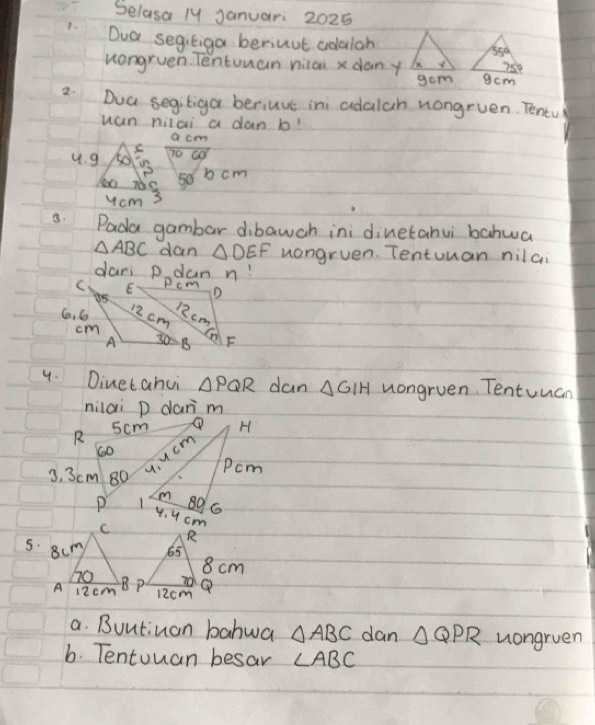 Selasa 14 Januari 2025
1. Dua segitiga berikut adalah
kongruen. Tentukan nilai x dan y
x y
9cm
55°
75°
9cm
2. Dua segitiga berikut ini adalah kongruen. Tentu
kan nilai a dan b!
4.9 50 5.52
60 70
4cm
a cm
70 60
50 b cm
3. Pada gambar dibawah ini diketahui bahwa
△ABC dan △DEF kongruen. Tentukan nilai
dari p dan n!
C 85 12cm
6,6 cm
A 30 B
E p cm D
12cm
n F
4. Diketahui △PQR dan △GIH kongruen. Tentukan
nilai p dan m
R 5cm Q
60
3,3cm 80 4,4cm
P
H
p cm
I m 80 G
4,4 cm
5. C
8cm
70
A 12cm B
R
65
8 cm
70
P 12cm Q
a. Buktikan bahwa △ABC dan △QPR kongruen
b. Tentukan besar ∠ABC